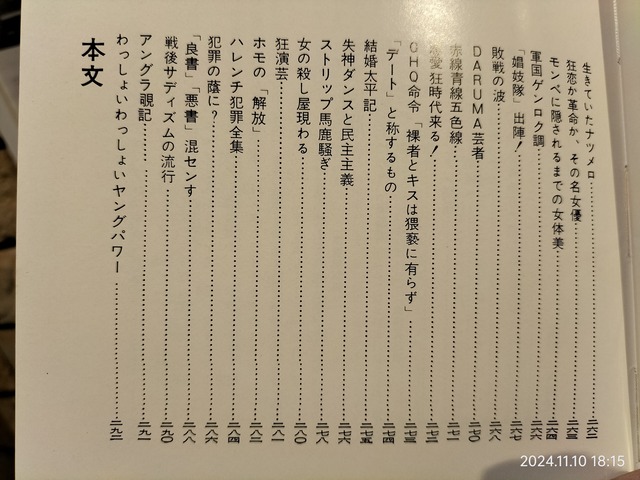 生きていたナツメロ……二六二
狂恋か革命か、その名女優……二六三
モンペに隠されるまでの女体美……二六四
軍国ゲンロク調……二六六
「娼妓隊」出陣！……二六七
敗戦の波……二六八
DARUMA芸者……二七〇
赤線青線五色線……二七一
恋愛狂時代来る！……二七二
GHQ命令「裸者とキスは猥褻に有らず」……二七三
「デート」と称するもの……二七四
結婚太平記……二七五
失神ダンスと民主主義……二七六
ストリップ馬鹿騒ぎ……二七八
女の殺し屋現わる……二八〇
狂演芸……二八一
ホモの「解放」……二八二
ハレンチ犯罪全集……二八四
犯罪の蔭に？……二八六
「良書」「悪書」混センす……二八八
戦後サディズムの流行……二九〇
アングラ覗記……二九一
わっしょいわっしょいヤングパワー……二九二
本文
2024.11.10 18:15